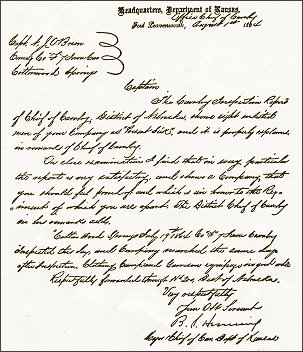 Headquarters, Department of Kansas,
Office Chief of Cavalry
Fort Leavenworth, August 1st 1864
Capt. N. J. O'Brien
Comdg Co F 7 Iowa Cav
Cottonwood Springs
Captain
The Cavalry Inspection Report
of Chief of Cavalry, District of Nebraska, shows eight enlisted
men of your Company as "absent sick", and it is properly
in remarks of Chief of Cavalry.
On close examination I find that in every particular
the report is very satisfactory, and shows a Company, that
you should feel proud of and which is an honor to the Reg-
iment of which you are a part. The District Chief of Cavalry
in his remarks adds.
"Cotton Wood Springs July 19th 1864 Co. F 7 Iowa Cavalry
Inspected this day and Company marched the same day
after Inspection. Clothing Camp and Garrison equipage in good order
Respectfully forwarded through Hd Qrs, Dist of Nebraska.
Very respectfully
Your Obt Servant
B. S. Henning
Major & Chief of Cav. Dept of Kansas